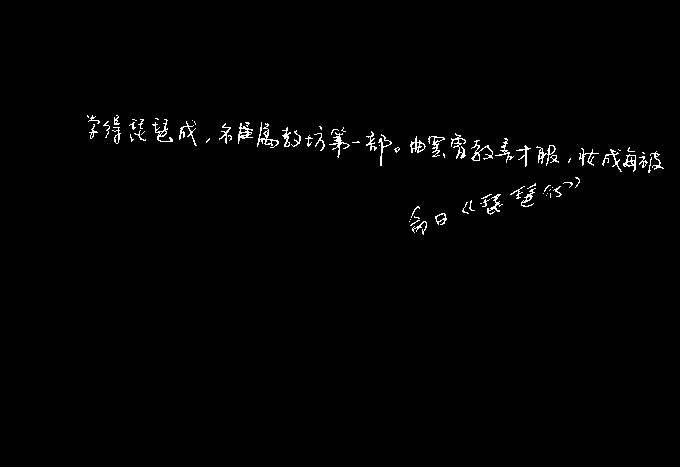 学得琵琶成，名属教坊第一部。曲罢曾教善才服，妆成每被
命曰《琵琶行》